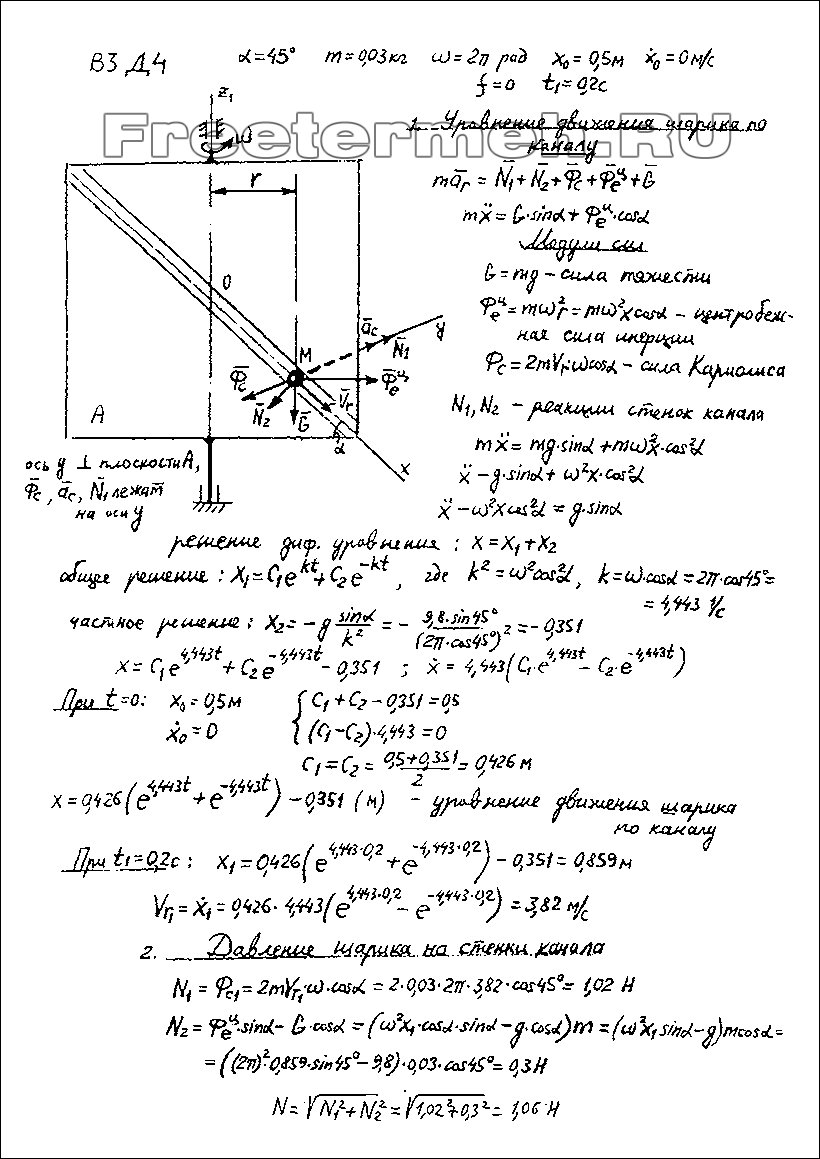 В3 Д4
α=45° m=0,03кг ω=2π рад x₀=0,5м ẋ₀=0м/с
f=0 t₁=0,2с
Freetermeh.RU
1. Уравнение движения шарика по
каналу
mā_r = N̄₁+N̄₂+Φ̄_c+Φ̄_e^ц+Ḡ
mẍ = G·sinα+Φ_e^ц·cosα
Модули сил
G=mg – сила тяжести
Φ_e^ц=mω²r=mω²x cosα – центробеж-
ная сила инерции
Φ_c=2mV_r ω cosα – сила Кариолиса
N₁,N₂ – реакции стенок канала
mẍ = mg·sinα+mω²x·cos²α
ẍ – g·sinα+ω²x·cos²α
ẍ – ω²x cos²α = g·sinα
z₁
ω
r
O
M
ā_c
y
N̄₁
Φ̄_c
Φ̄_e^ц
N̄₂
Ḡ
V̄_r
α
A
x
ось y ⊥ плоскости A,
Φ̄_c, ā_c, N̄₁ лежат
на оси y
решение диф. уравнения : x=x₁+x₂
общее решение : x₁=C₁e^{kt}+C₂e^{-kt}, где k²=ω²cos²α, k=ω·cosα=2π·cos45°=
=4,443 1/с
частное решение : x₂=–g sinα/k² = – 9,8·sin45°/(2π·cos45°)² = –0,351
x=C₁e^{4,443t}+C₂e^{-4,443t}–0,351 ; ẋ=4,443(C₁·e^{4,443t}–C₂·e^{-4,443t})
При t=0: x₀=0,5м { C₁+C₂–0,351=0,5
ẋ₀=0 (C₁–C₂)·4,443=0
C₁=C₂=(0,5+0,351)/2=0,426 м
x=0,426(e^{4,443t}+e^{-4,443t})–0,351 (м) – уравнение движения шарика
по каналу
При t₁=0,2с : x₁=0,426(e^{4,443·0,2}+e^{-4,443·0,2})–0,351=0,859м
V_{r1}=ẋ₁=0,426·4,443(e^{4,443·0,2}–e^{-4,443·0,2})=3,82 м/с
2. Давление шарика на стенки канала
N₁=Φ_{c1}=2mV_{r1}·ω·cosα=2·0,03·2π·3,82·cos45°=1,02 Н
N₂=Φ_e^ц·sinα–G·cosα=(ω²x₁·cosα·sinα–g·cosα)m=(ω²x₁sinα–g)m cosα=
=((2π)²·0,859·sin45°–9,8)·0,03·cos45°=0,3Н
N=√(N₁²+N₂²)=√(1,02²+0,3²)=1,06 Н